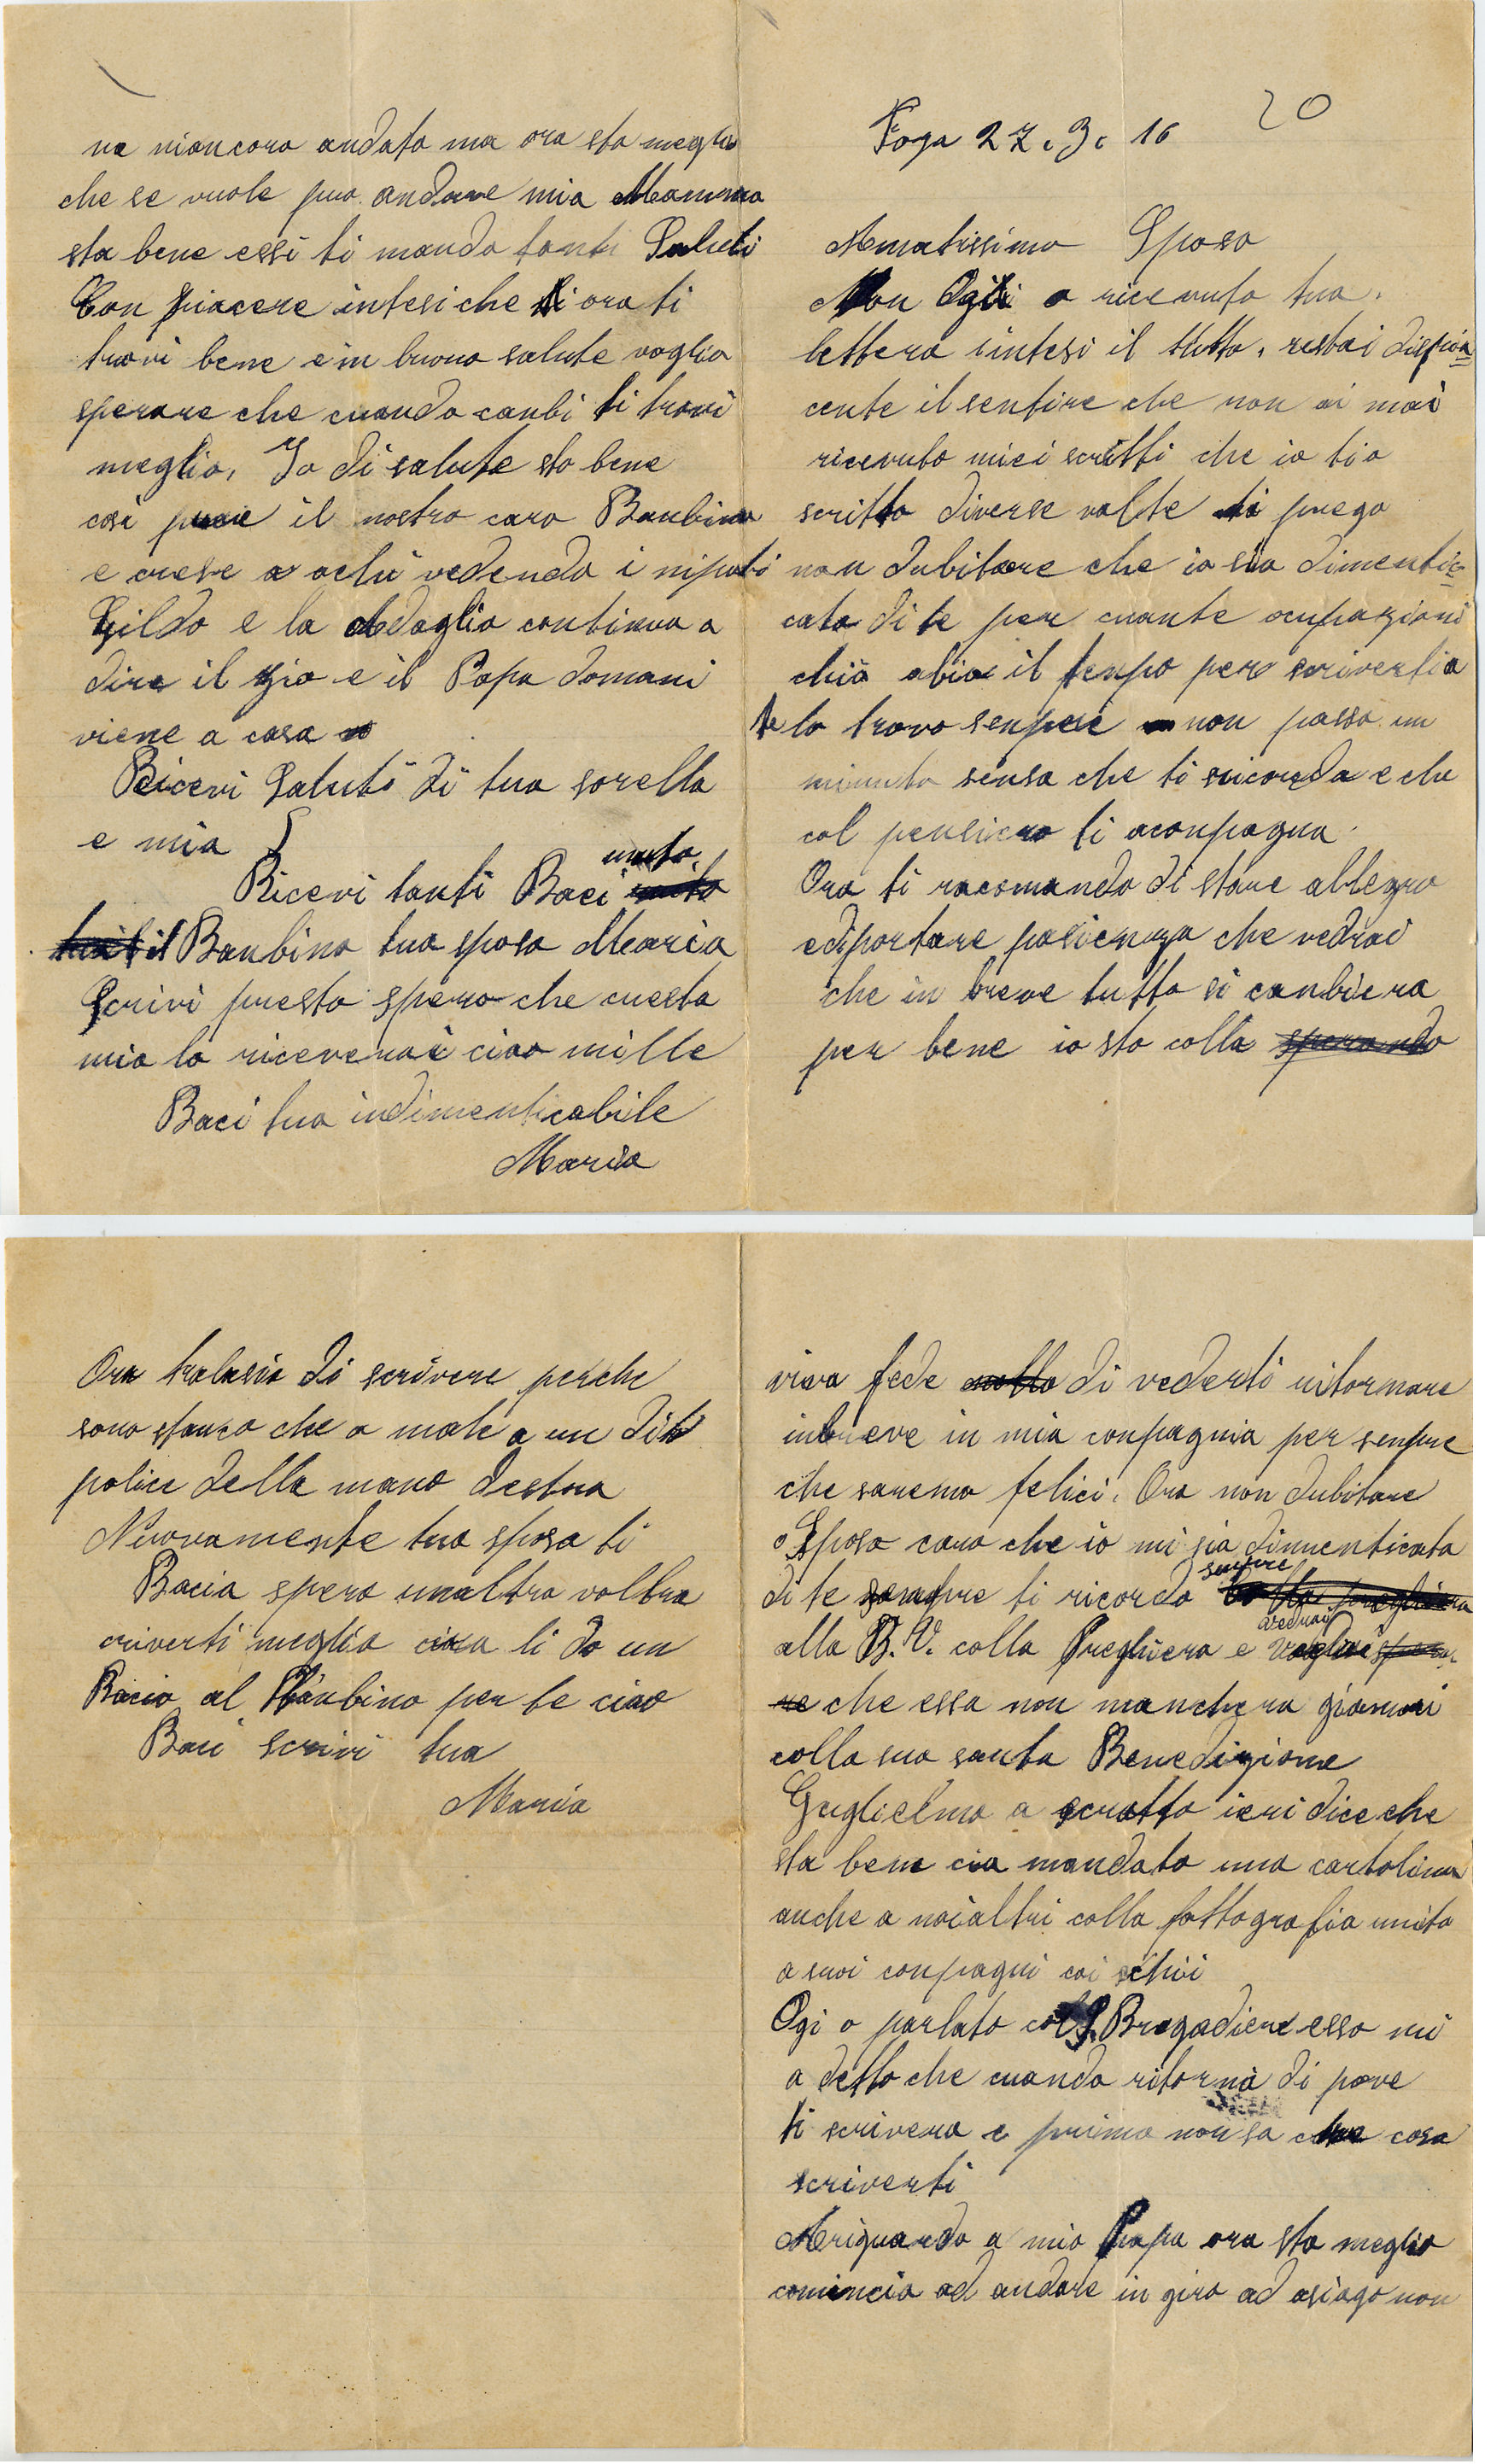 20
Foga 27. 3. 16
Amatissimo Sposo
Ogi o ricevuto tua
lettera intesi il tutto, restai dispia=
cente il sentire che non ai mai
ricevuto miei scritti che io tio
scritto diverse volte ti prego
non dubitare che io sia dimenti=
cata di te per cuante ocupazioni
chia abia il tenpo per scriverti a
te lo trovo senpre non passo un
minuto sensa che ti ricorda e che
col pensiero ti aconpagna.
Ora ti racomando di stare allegro
e di portare pasienza che vedrai
che in breve tutto si canbiera
per bene io sto colla sperando
viva fede di vederti ritornare
in breve in mia conpagnia per senpre
che saremo felici. Ora non dubitare
o Sposo caro che io mi sia dimenticata
senpre
di te senpre ti ricordo
vedrai
alla B. V. colla Preghiera e
re che essa non manchera giamai
colla sua santa Benedizione
Guglielmo a scritto ieri dice che
sta bene cia mandato una cartolina
anche a noialtri colla fottografia unito
a suoi conpagni coi schii
Ogi o parlato col Bregadiere esso mi
a detto che cuando ritorna di pove
ti scrivera e prima non sa che cosa
scriverti
Ariguardo a mio Papa ora sta meglio
comincia ad andare in giro ad asiago non
ne niancora andato ma ora sta meglio
che se vuole puo andare mia Mamma
sta bene essi ti manda tanti Saluti
Con piacere intesi che ti ora ti
trovi bene e in buona salute voglio
sperare che cuando canbi ti trovi
meglio. Io di salute sto bene
cosi pure il nostro caro Banbino
e crese a ochi vedendo i nipoti
Gildo e la Adaglia continua a
dire il zio e il Papa domani
viene a casa
Ricevi Saluti di tua sorella
e mia
unito
Ricevi tanti Baci unito
il Banbino tua sposa Maria
Scrivi presto spero che cuesta
mia la riceverai ciao mille
Baci tua indimenticabile
Maria
Ora tralasio di scrivere perche
sono stanca che o male a un dito
police della mano destra
Nuovamente tua sposa ti
Bacia spero unaltra voltra
criverti meglio ciao li do un
Bacio al Banbino per te ciao
Baci scrivi tua
Maria